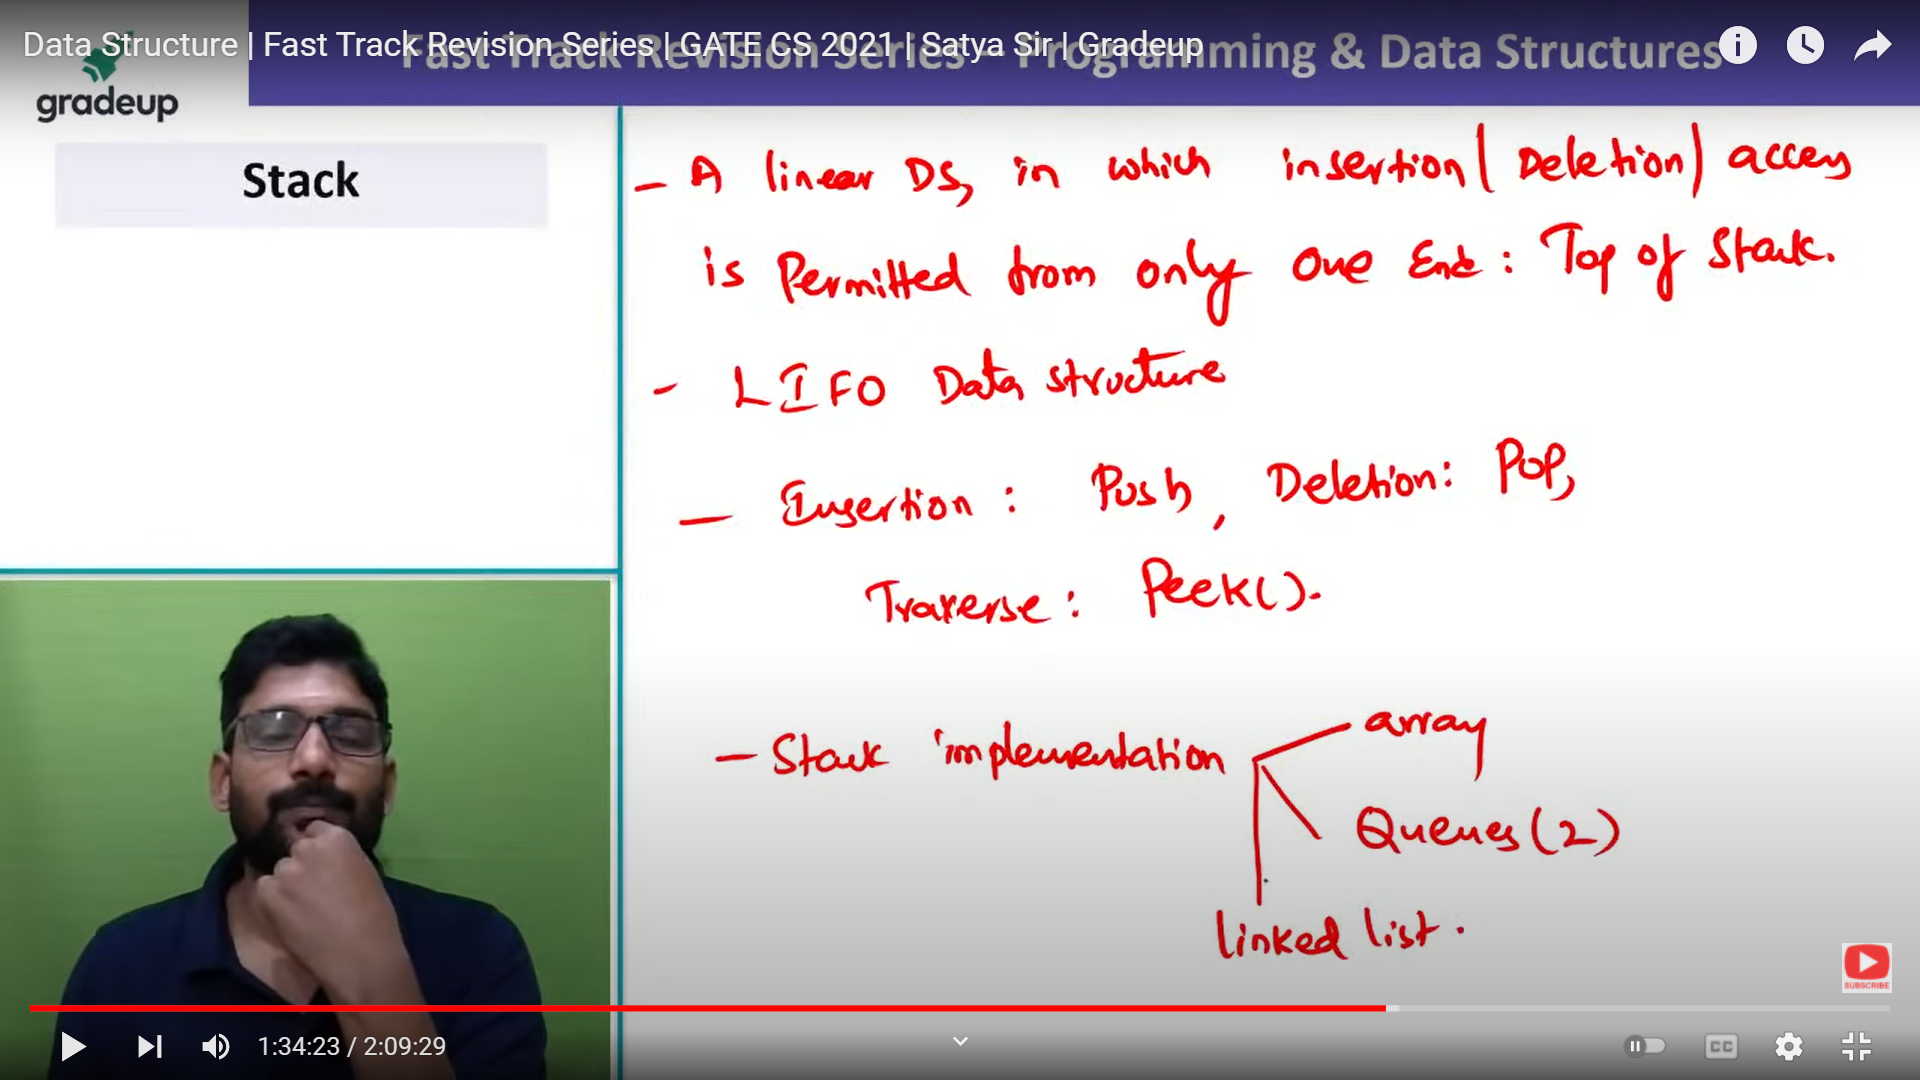 Data Structure | Fast Track Revision Series | GATE CS 2021 | Satya Sir | Gradeup
Fast Track Revision Series - Programming & Data Structures
gradeup
Stack
- A linear DS, in which insertion/Deletion/access
is Permitted from only one End: Top of Stack.
- LIFO Data structure
- Insertion: Push, Deletion: Pop,
Traverse: Peek().
- Stack implementation
array
Queues(2)
linked list.
SUBSCRIBE
1:34:23 / 2:09:29
CC